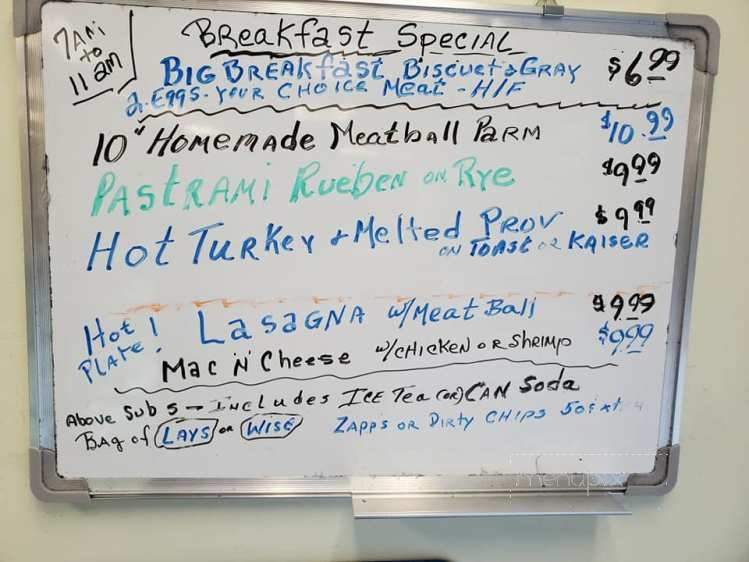 7AM to 11 am
Breakfast Special
BIG BREAKfast Biscuet & GRAY $6.99
2-Eggs-Your CHOICE Meat - H/F
10" Homemade Meatball Parm $10.99
PAStRAMi Rueben on Rye $9.99
Hot Turkey & Melted Prov $9.99
on Toast or KAISER
Hot PLAte! LasaGNA w/Meat Ball $9.99
Mac 'N' Cheese w/CHICKEN OR SHRIMP $9.99
Above Subs → Includes Ice Tea (or) CAN Soda
BAg of LAYS or WISE ZAPPS OR DIRTY CHIPS 50¢
menupix